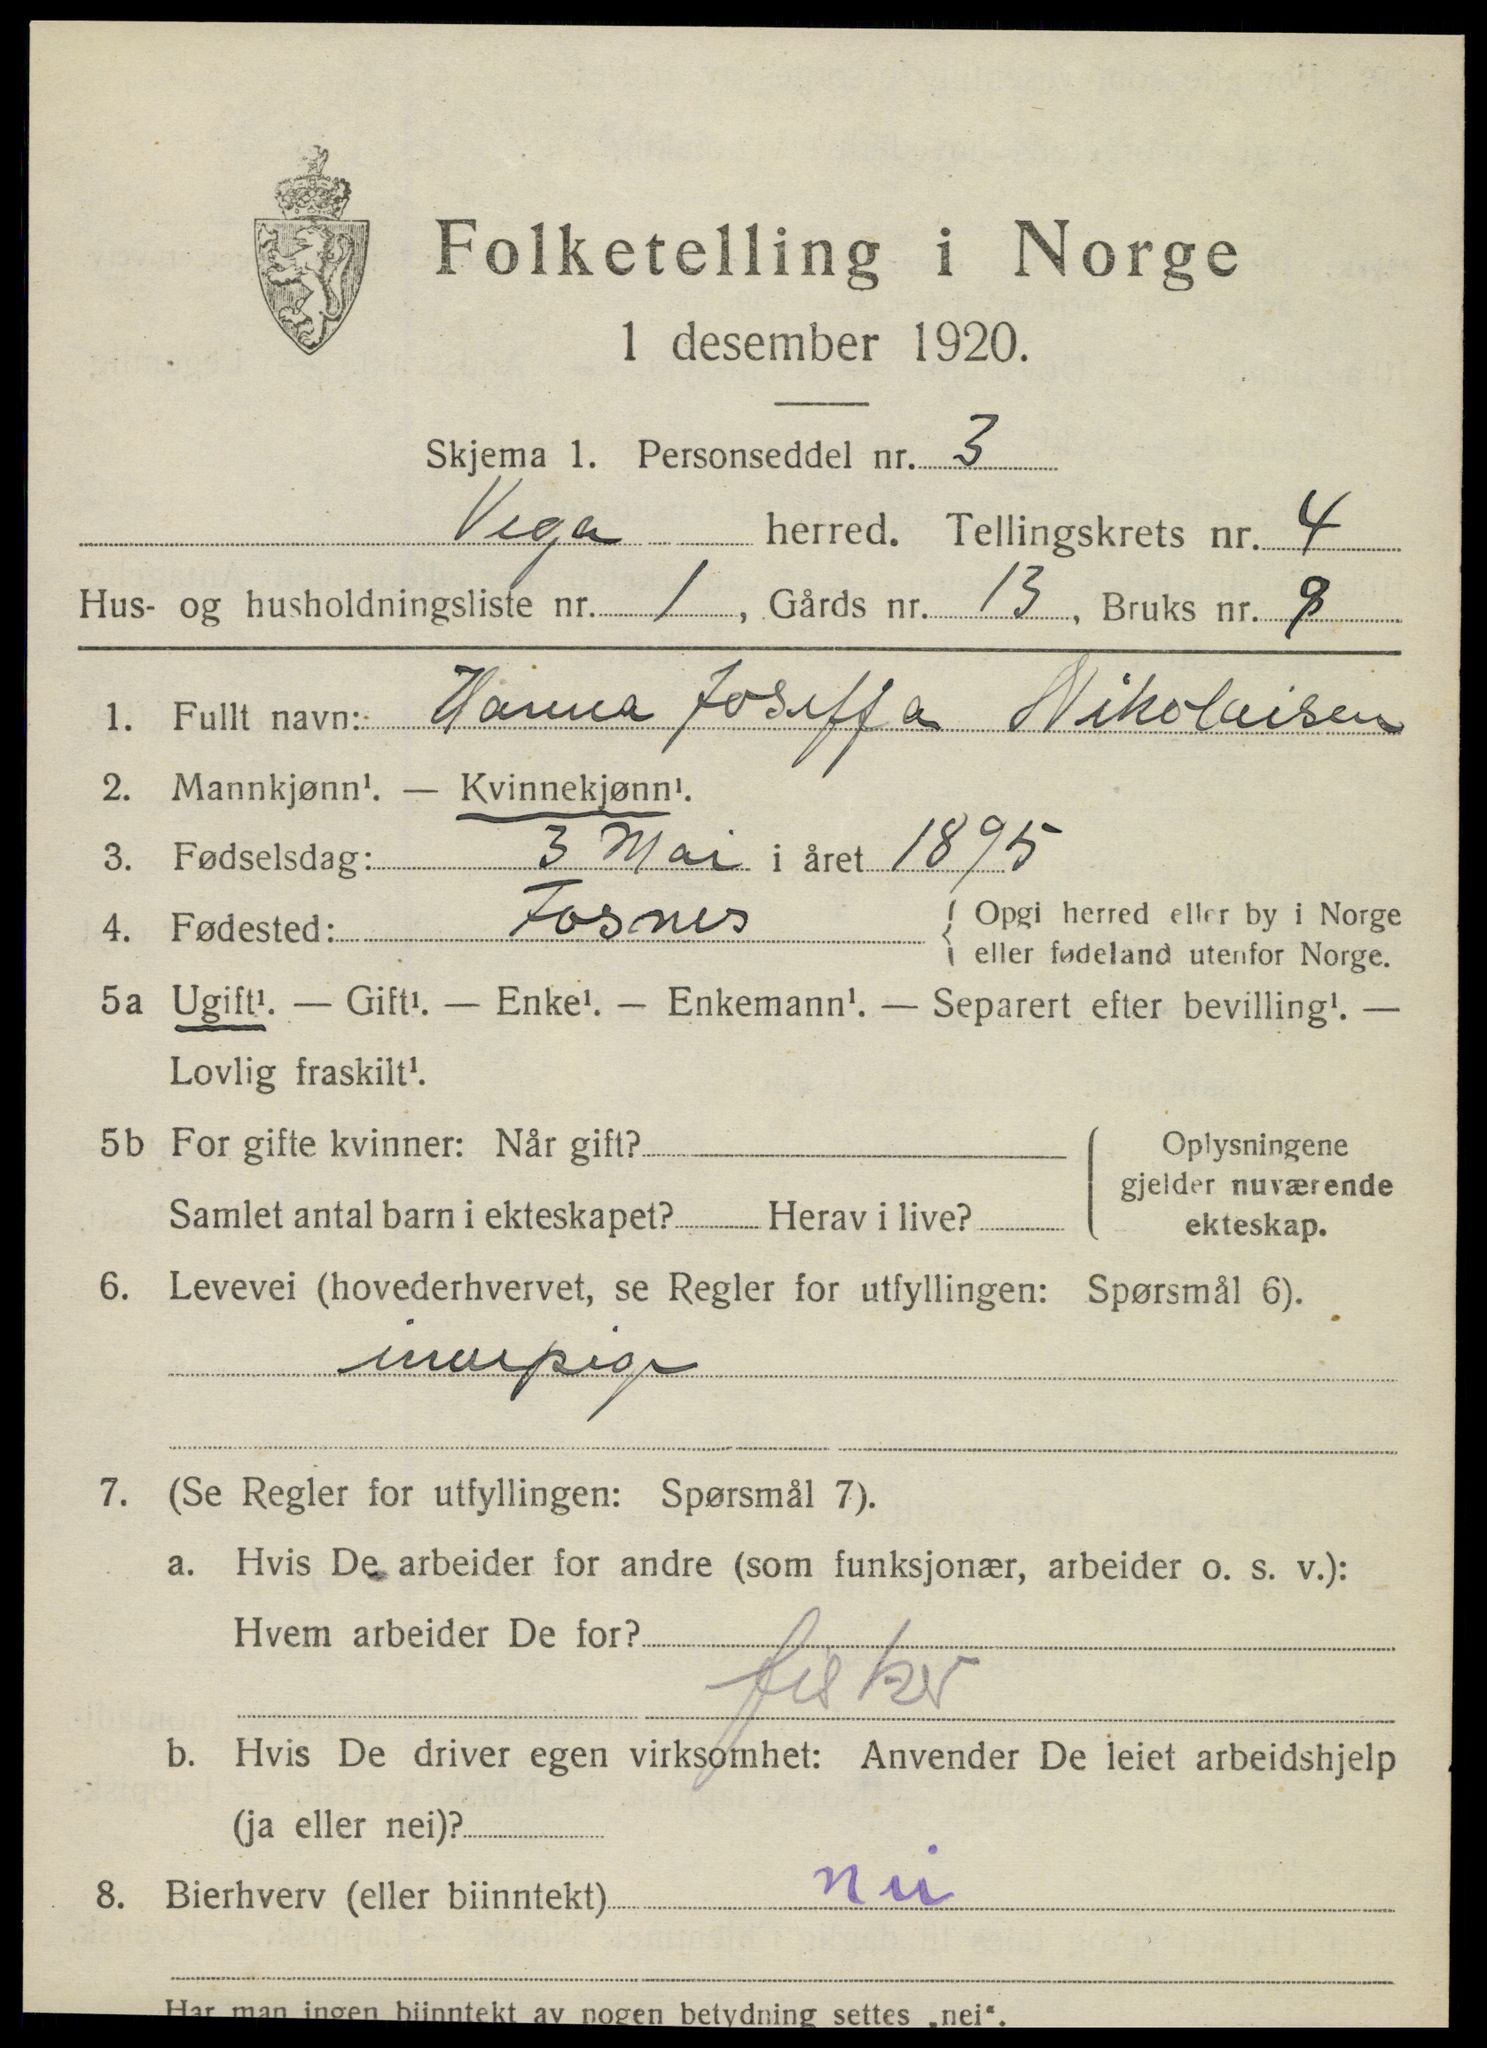 Folketelling i Norge
1 desember 1920.
Skjema 1. Personseddel nr. 3
Vega herred. Tellingskrets nr. 4
Hus- og husholdningsliste nr. 1, Gårds nr. 13, Bruks nr.
1. Fullt navn: Hanna Joseffa Nikolaisen
2. Mannkjønn¹. — Kvinnekjønn¹.
3. Fødselsdag: 3 Mai i året 1895
4. Fødested: Fosnes { Opgi herred eller by i Norge
eller fødeland utenfor Norge.
5a Ugift¹. — Gift¹. — Enke¹. — Enkemann¹. — Separert efter bevilling¹. —
Lovlig fraskilt¹.
5b For gifte kvinner: Når gift? { Oplysningene
gjelder nuværende
Samlet antal barn i ekteskapet? Herav i live? ekteskap.
6. Levevei (hovederhvervet, se Regler for utfyllingen: Spørsmål 6).
7. (Se Regler for utfyllingen: Spørsmål 7).
a. Hvis De arbeider for andre (som funksjonær, arbeider o. s. v.):
Hvem arbeider De for?
fisker
b. Hvis De driver egen virksomhet: Anvender De leiet arbeidshjelp
(ja eller nei)?
8. Bierhverv (eller biinntekt) nei
Har man ingen biinntekt av nogen betydning settes „nei“.